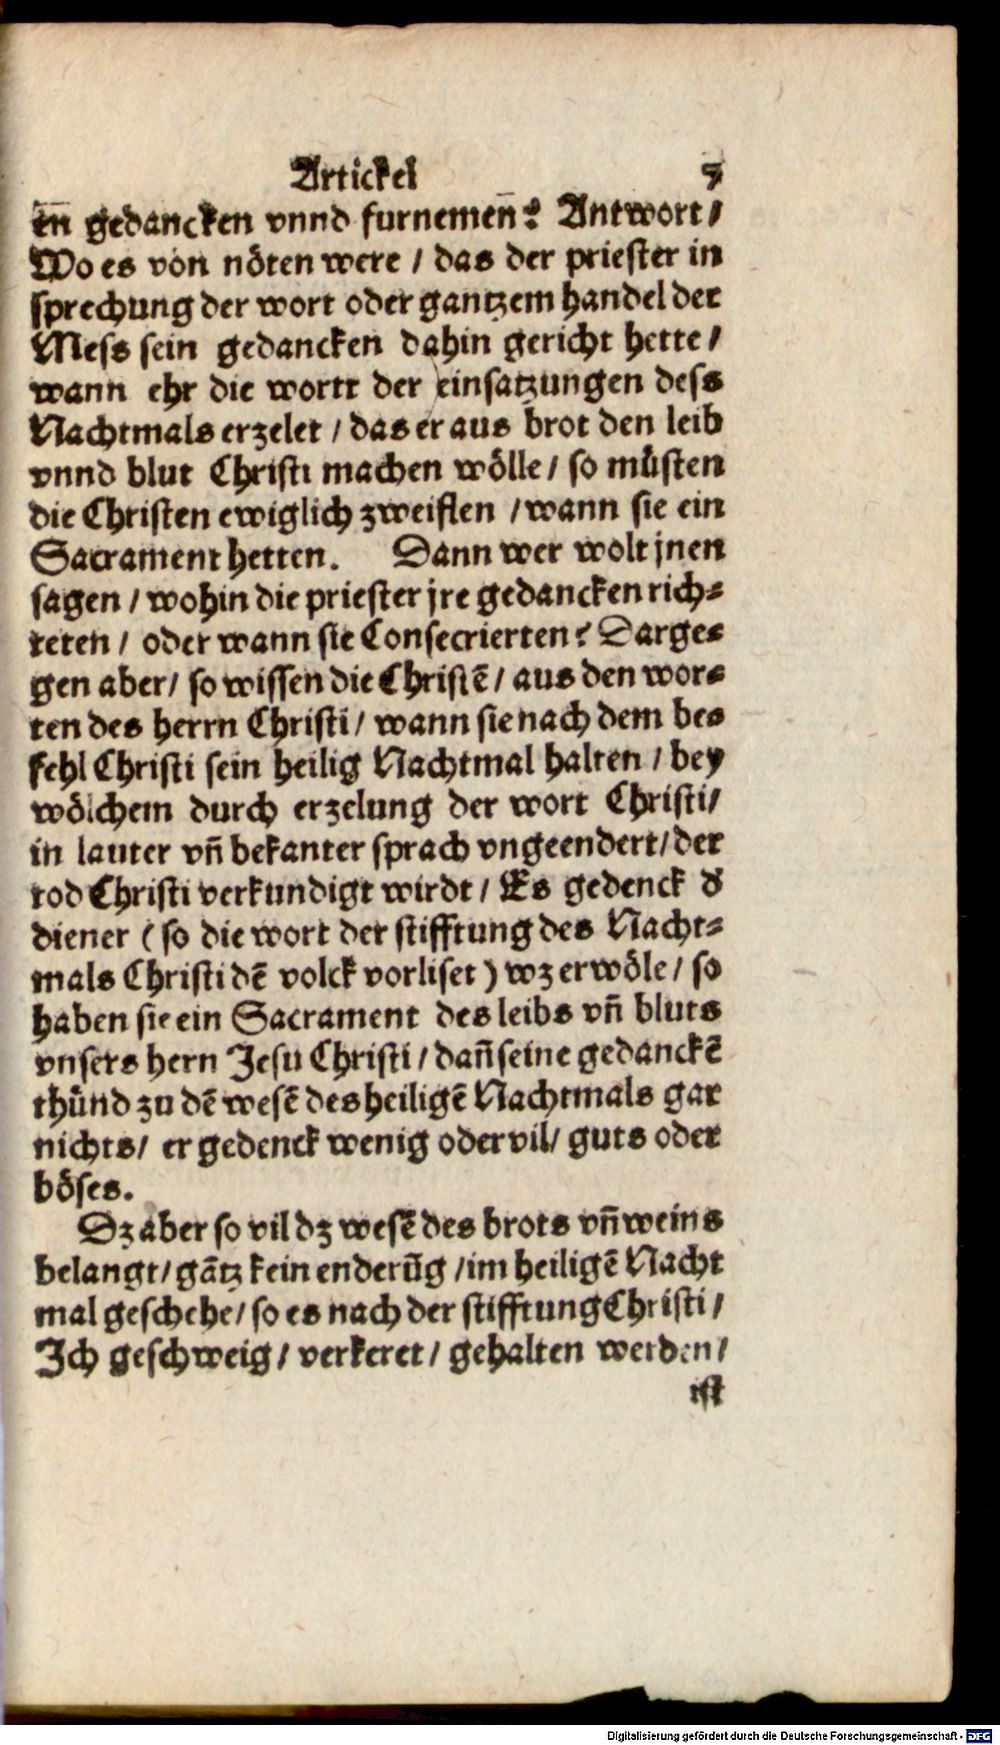 Artickel 7
en̄ gedancken vnnd furnemen̄? Antwort /
Wo es von nöten were / das der priester in
sprechung der wort oder gantzem handel der
Mess sein gedancken dahin gericht hette /
wann ehr die wortt der einsatzungen dess
Nachtmals erzelet / das er aus brot den leib
vnnd blut Christi machen wölle / so müsten
die Christen ewiglich zweiflen / wann sie ein
Sacrament hetten. Dann wer wolt jnen
sagen / wohin die priester jre gedancken rich=
teten / oder wann sie Consecrierten? Darge=
gen aber / so wissen die Christē / aus den wor=
ten des herrn Christi / wann sie nach dem be=
fehl Christi sein heilig Nachtmal halten / bey
wölchem durch erzelung der wort Christi /
in lauter vn̄ bekanter sprach vngeendert / der
tod Christi verkundigt wirdt / Es gedenck d̕
diener ( so die wort der stifftung des Nacht=
mals Christi dē volck vorliset ) wz er wöle / so
haben sie ein Sacrament des leibs vn̄ bluts
vnsers hern Jesu Christi / dan̄ seine gedanckē
thünd zu dē wesē des heiligē Nachtmals gar
nichts / er gedenck wenig oder vil / guts oder
böses.
Dz aber so vil dz wesē des brots vn̄ weins
belangt / gātz kein enderūg / im heiligē Nacht
mal geschehe / so es nach der stifftung Christi /
Ich geschweig / verkeret / gehalten werden /
ist
Digitalisierung gefördert durch die Deutsche Forschungsgemeinschaft - DFG